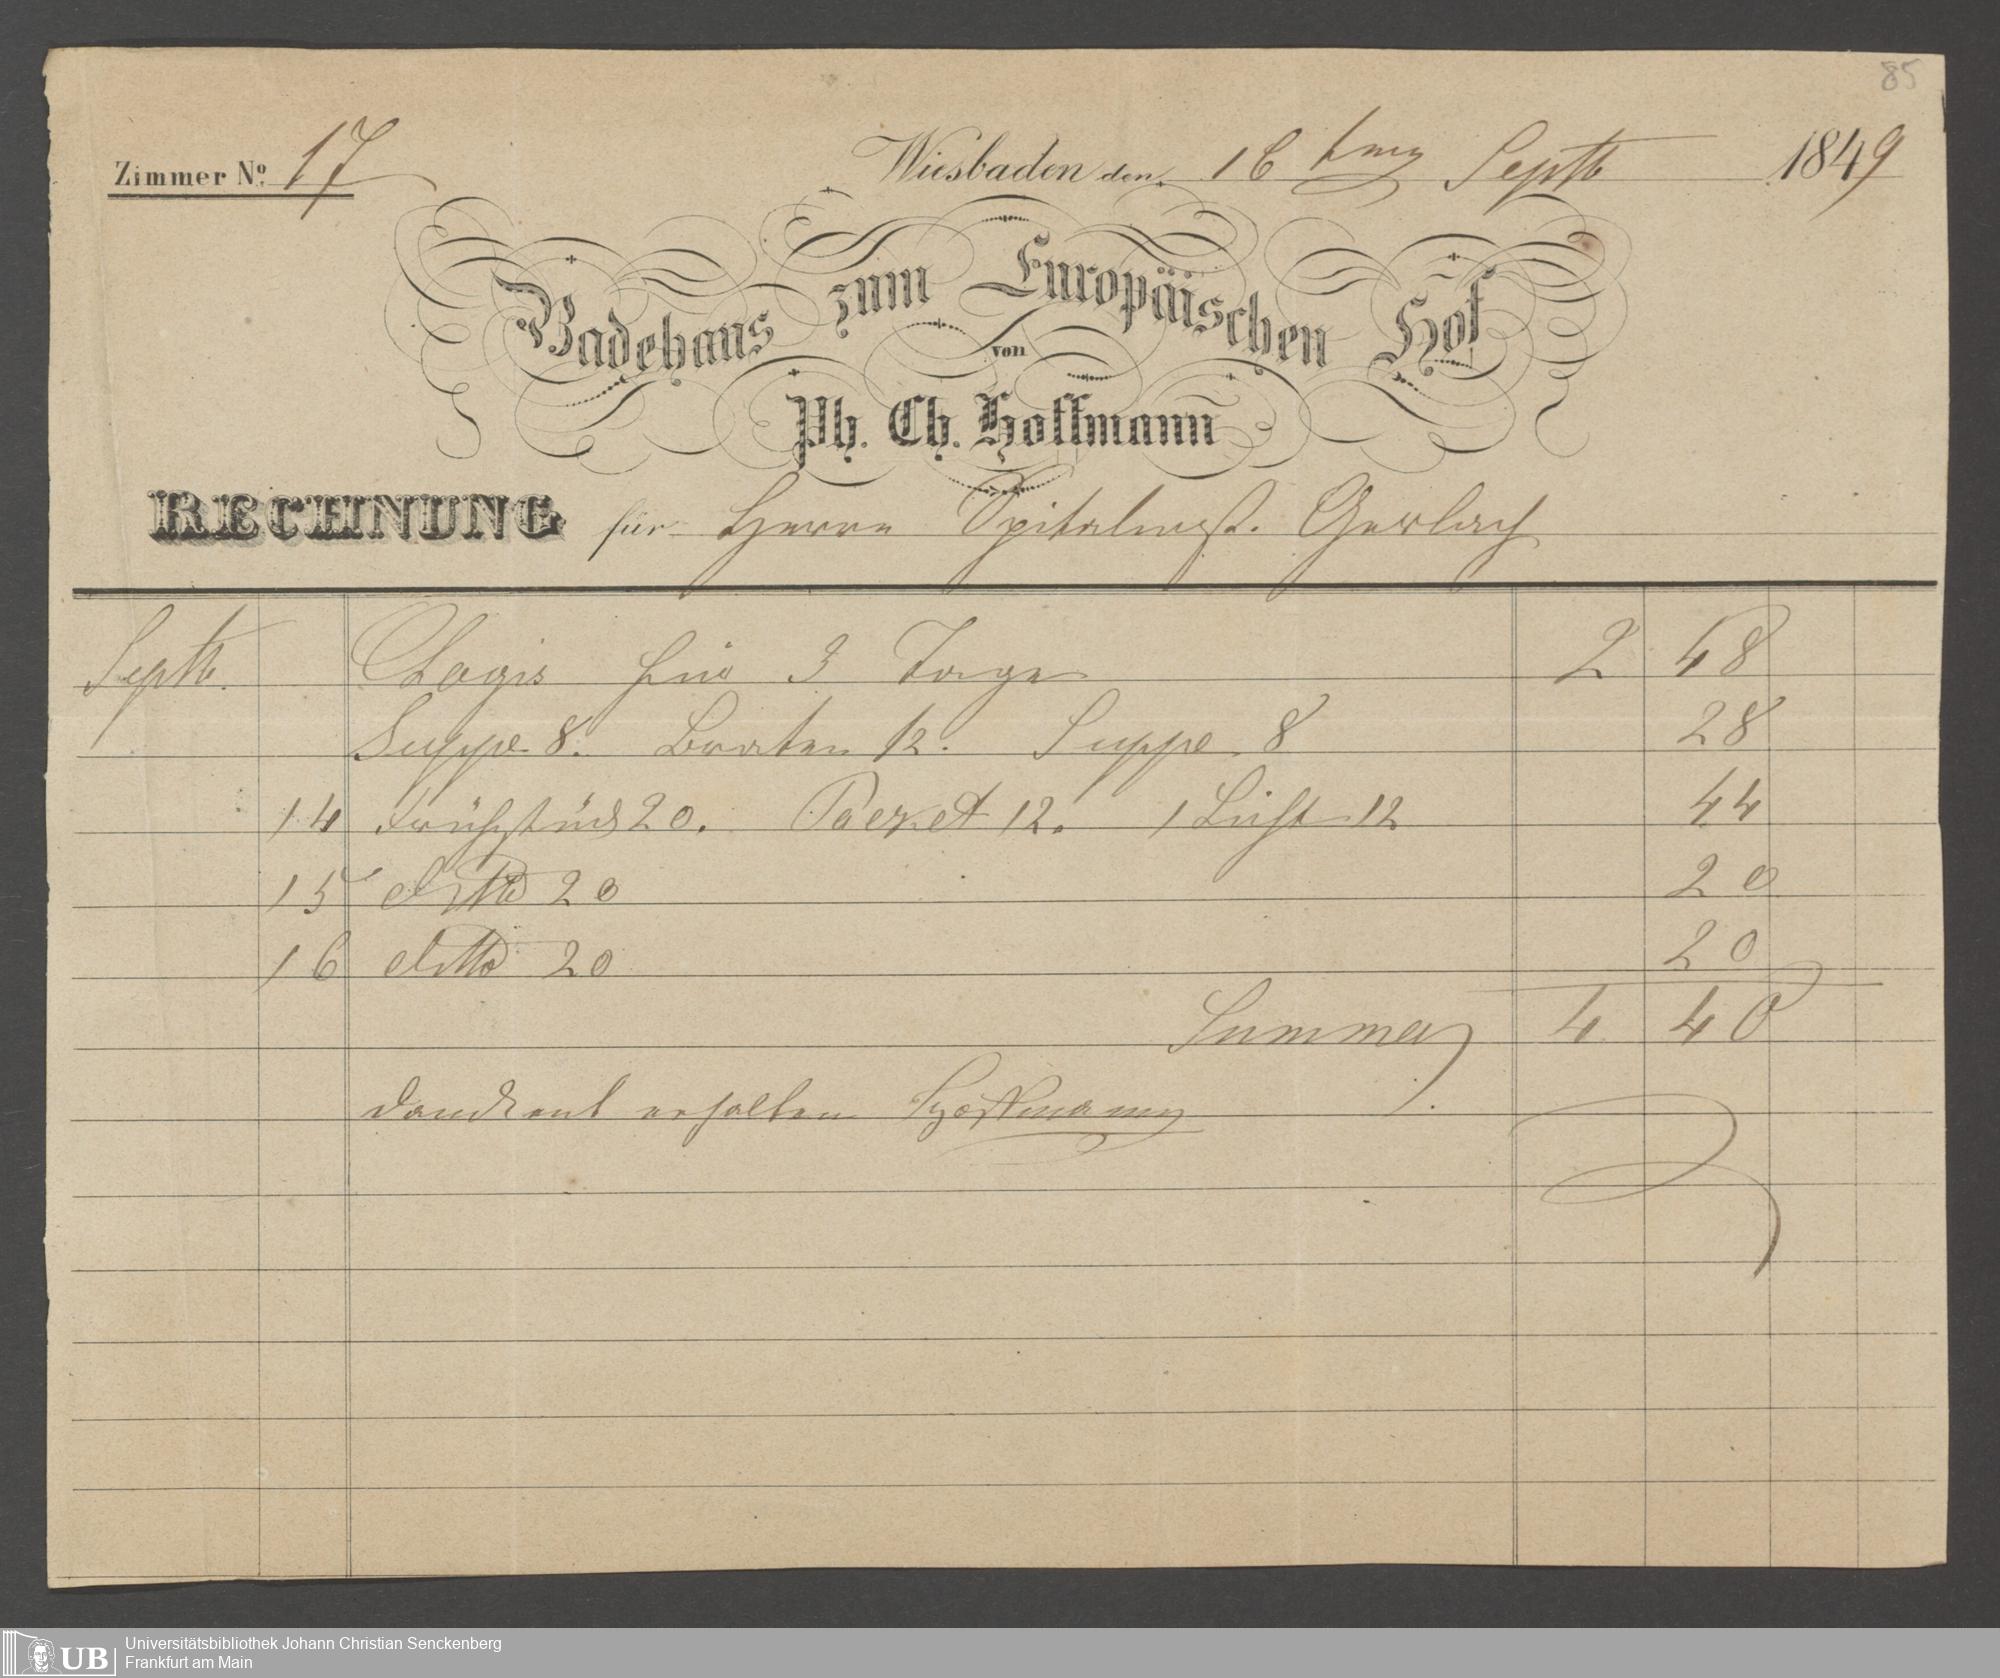 85
Zimmer No. 17
Wiesbaden den 16ten Septb 1849
Badehaus zum Europäischen Hof
von
Ph. Ch. Hoffmann
RECHNUNG für Herrn Spitalmst. Gerlach
Septb. Logis für 3 Tage 2 48
Suppe 8. Braten 12. Suppe 8 28
14 Frühstück 20. Packet 12. 1 Licht 12 44
15 ditto 20 20
16 ditto 20 20
Summa 4 40
danckent erhalten Hoffmann
UB
Universitätsbibliothek Johann Christian Senckenberg
Frankfurt am Main